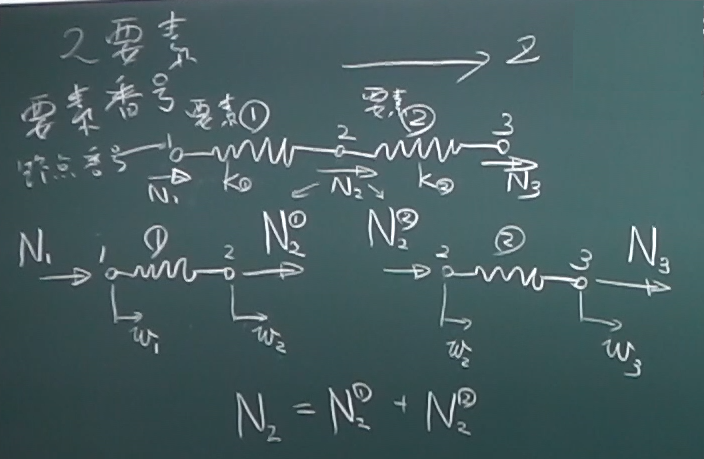 2要素
z
要素番号 要素① 要素②
節点番号 1 2 3
N₁ k① N₂ k② N₃
N₁ 1 ① 2 N₂① N₂② 2 ② 3 N₃
w₁ w₂ w₂ w₃
N₂ = N₂① + N₂②